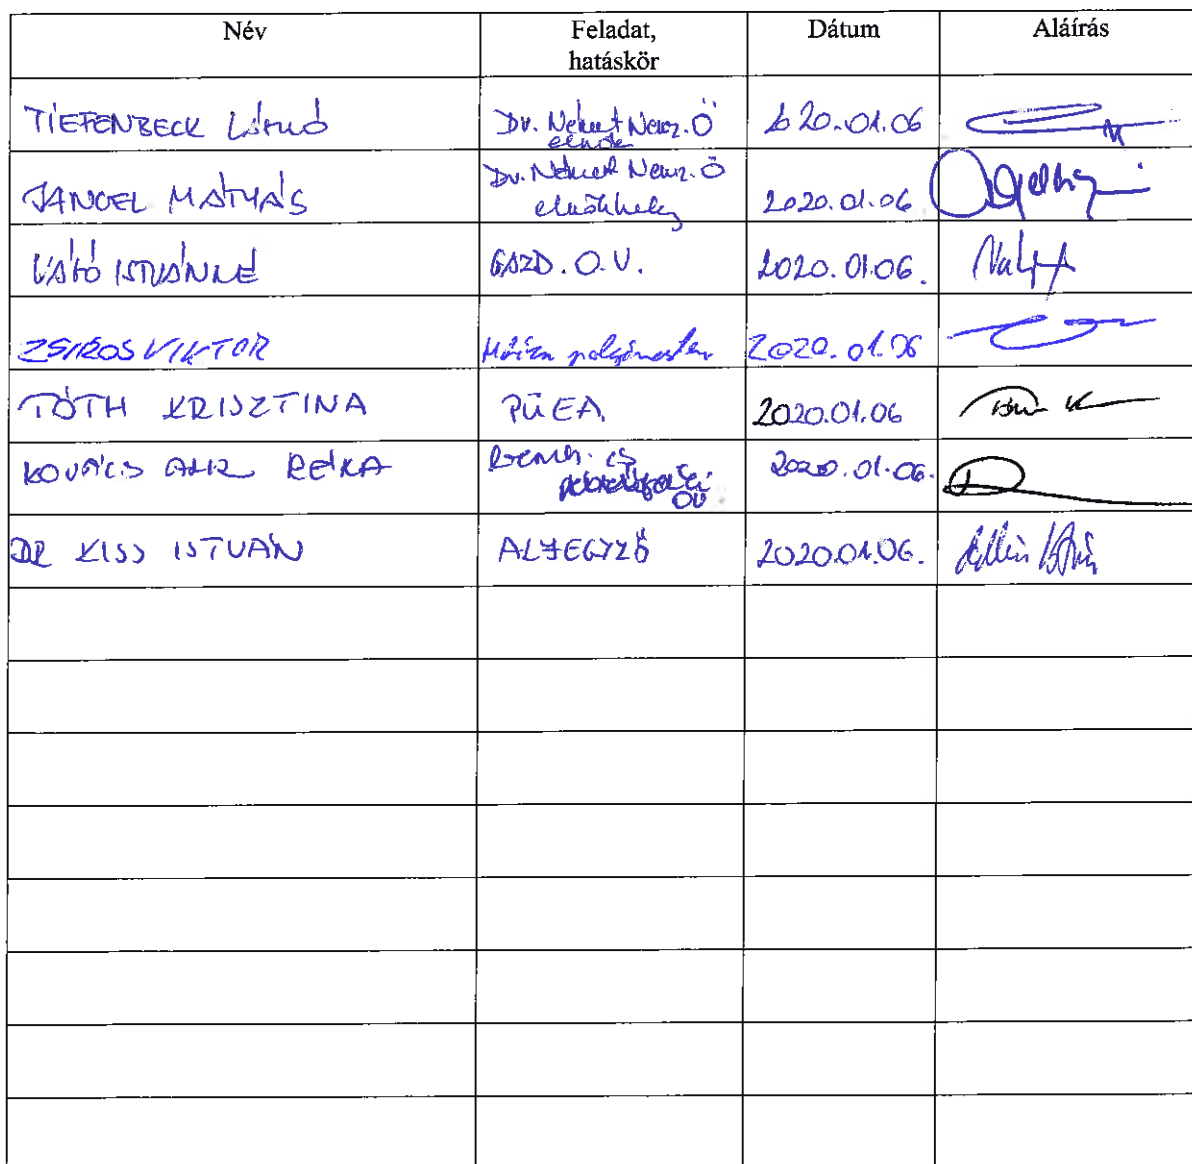 Név Feladat, hatáskör Dátum Aláírás
TIEFENBECK LÁSZLÓ Dv. Német Nemz. Ö elnöke 2020.01.06
JANGEL MÁTYÁS Dv. Német Nemz. Ö elnökhely 2020.01.06
VÁTÓ ISTVÁNNÉ GAZD. O.V. 2020.01.06.
ZSIROS VIKTOR polgármester 2020.01.06
TÓTH KRISZTINA PÜEA 2020.01.06
KOVÁCS ALIZ RÉKA és OV 2020.01.06.
DR KISS ISTVÁN ALJEGYZŐ 2020.01.06.